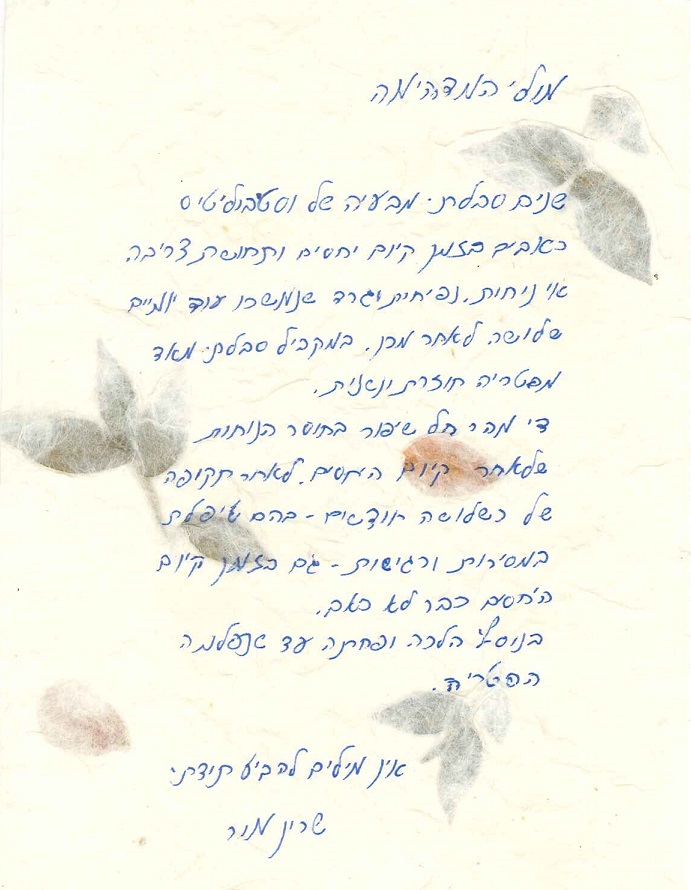 מולי המדהימה
שנים סבלתי מבעיה של וסטבוליטיס
כאבים בזמן קיום יחסים ותחושת צריבה
אי נוחות, נפיחות וגרד שנמשכו עוד יומיים
שלושה לאחר מכן. במקביל סבלתי מאד
מפטריה חוזרת ונשנית.
די מהר חל שיפור בחוסר הנוחות
שלאחר קיום היחסים. לאחר תקופה
של כשלושה חודשים - בהם טיפלת
במסירות ורגישות - גם בזמן קיום
היחסים כבר לא כאב.
בנוסף הלכה ופחתה עד שנעלמה
הפטריה.
אין מילים להביע תודתי
שרין מור